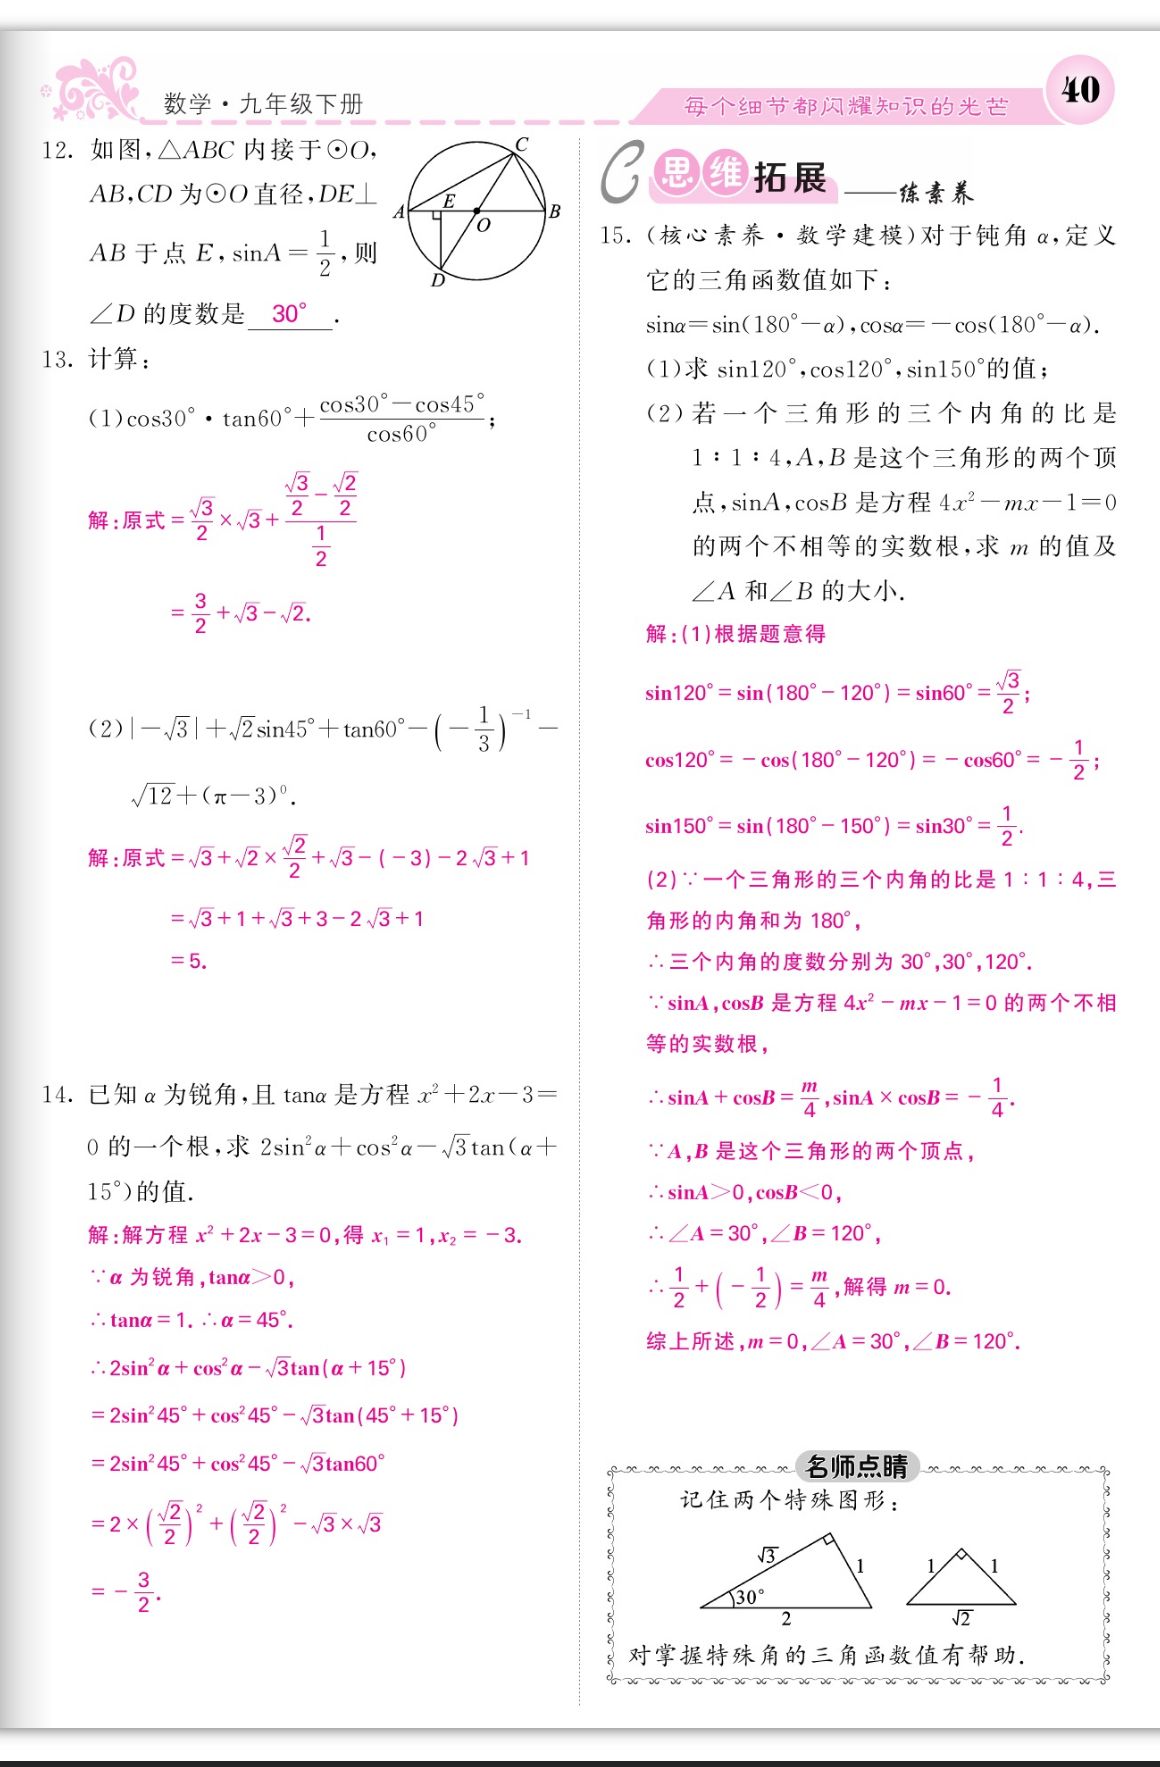 数学·九年级下册
每个细节都闪耀知识的光芒
40
12. 如图,△ABC 内接于⊙O,
AB,CD 为⊙O 直径,DE⊥
AB 于点 E,sinA=1/2,则
∠D 的度数是 30° .
C
A
E
O
B
D
13. 计算:
(1)cos30°·tan60°+(cos30°-cos45°)/cos60°;
解:原式=√3/2×√3+(√3/2-√2/2)/(1/2)
=3/2+√3-√2.
(2)|-√3|+√2sin45°+tan60°-(-1/3)⁻¹-
√12+(π-3)⁰.
解:原式=√3+√2×√2/2+√3-(-3)-2√3+1
=√3+1+√3+3-2√3+1
=5.
14. 已知 α 为锐角,且 tanα 是方程 x²+2x-3=
0 的一个根,求 2sin²α+cos²α-√3tan(α+
15°)的值.
解:解方程 x²+2x-3=0,得 x₁=1,x₂=-3.
∵α 为锐角,tanα>0,
∴tanα=1.∴α=45°.
∴2sin²α+cos²α-√3tan(α+15°)
=2sin²45°+cos²45°-√3tan(45°+15°)
=2sin²45°+cos²45°-√3tan60°
=2×(√2/2)²+(√2/2)²-√3×√3
=-3/2.
C 思维拓展——练素养
15. (核心素养·数学建模)对于钝角 α,定义
它的三角函数值如下:
sinα=sin(180°-α),cosα=-cos(180°-α).
(1)求 sin120°,cos120°,sin150°的值;
(2)若一个三角形的三个内角的比是
1∶1∶4,A,B 是这个三角形的两个顶
点,sinA,cosB 是方程 4x²-mx-1=0
的两个不相等的实数根,求 m 的值及
∠A 和∠B 的大小.
解:(1)根据题意得
sin120°=sin(180°-120°)=sin60°=√3/2;
cos120°=-cos(180°-120°)=-cos60°=-1/2;
sin150°=sin(180°-150°)=sin30°=1/2.
(2)∵一个三角形的三个内角的比是 1∶1∶4,三
角形的内角和为 180°,
∴三个内角的度数分别为 30°,30°,120°.
∵sinA,cosB 是方程 4x²-mx-1=0 的两个不相
等的实数根,
∴sinA+cosB=m/4,sinA×cosB=-1/4.
∵A,B 是这个三角形的两个顶点,
∴sinA>0,cosB<0,
∴∠A=30°,∠B=120°,
∴1/2+(-1/2)=m/4,解得 m=0.
综上所述,m=0,∠A=30°,∠B=120°.
名师点睛
记住两个特殊图形:
√3
1
30°
2
1
1
√2
对掌握特殊角的三角函数值有帮助.